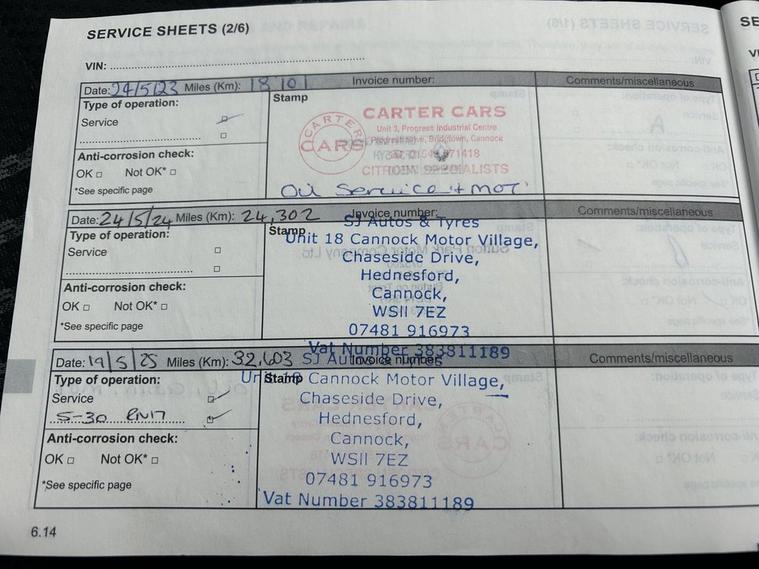 SERVICE SHEETS (2/6)
VIN:
Date: 24/5/23 Miles (Km): 18101 Invoice number: Comments/miscellaneous
Type of operation:
Service
Anti-corrosion check:
OK Not OK*
*See specific page
Stamp
CARTER CARS
CARTER CARS
Unit 3, Progress Industrial Centre
Cannock
CITROEN SPECIALISTS
Oil Service + MOT
Date: 24/5/24 Miles (Km): 24,302 Invoice number: Comments/miscellaneous
Type of operation:
Service
Anti-corrosion check:
OK Not OK*
*See specific page
Stamp
SJ Autos & Tyres
Unit 18 Cannock Motor Village,
Chaseside Drive,
Hednesford,
Cannock,
WS11 7EZ
07481 916973
Vat Number 383811189
Date: 19/5/25 Miles (Km): 32,603 Invoice number: Comments/miscellaneous
Type of operation:
Service
5-30 RN17
Anti-corrosion check:
OK Not OK*
*See specific page
Stamp
SJ Autos & Tyres
Unit 18 Cannock Motor Village,
Chaseside Drive,
Hednesford,
Cannock,
WS11 7EZ
07481 916973
Vat Number 383811189
6.14